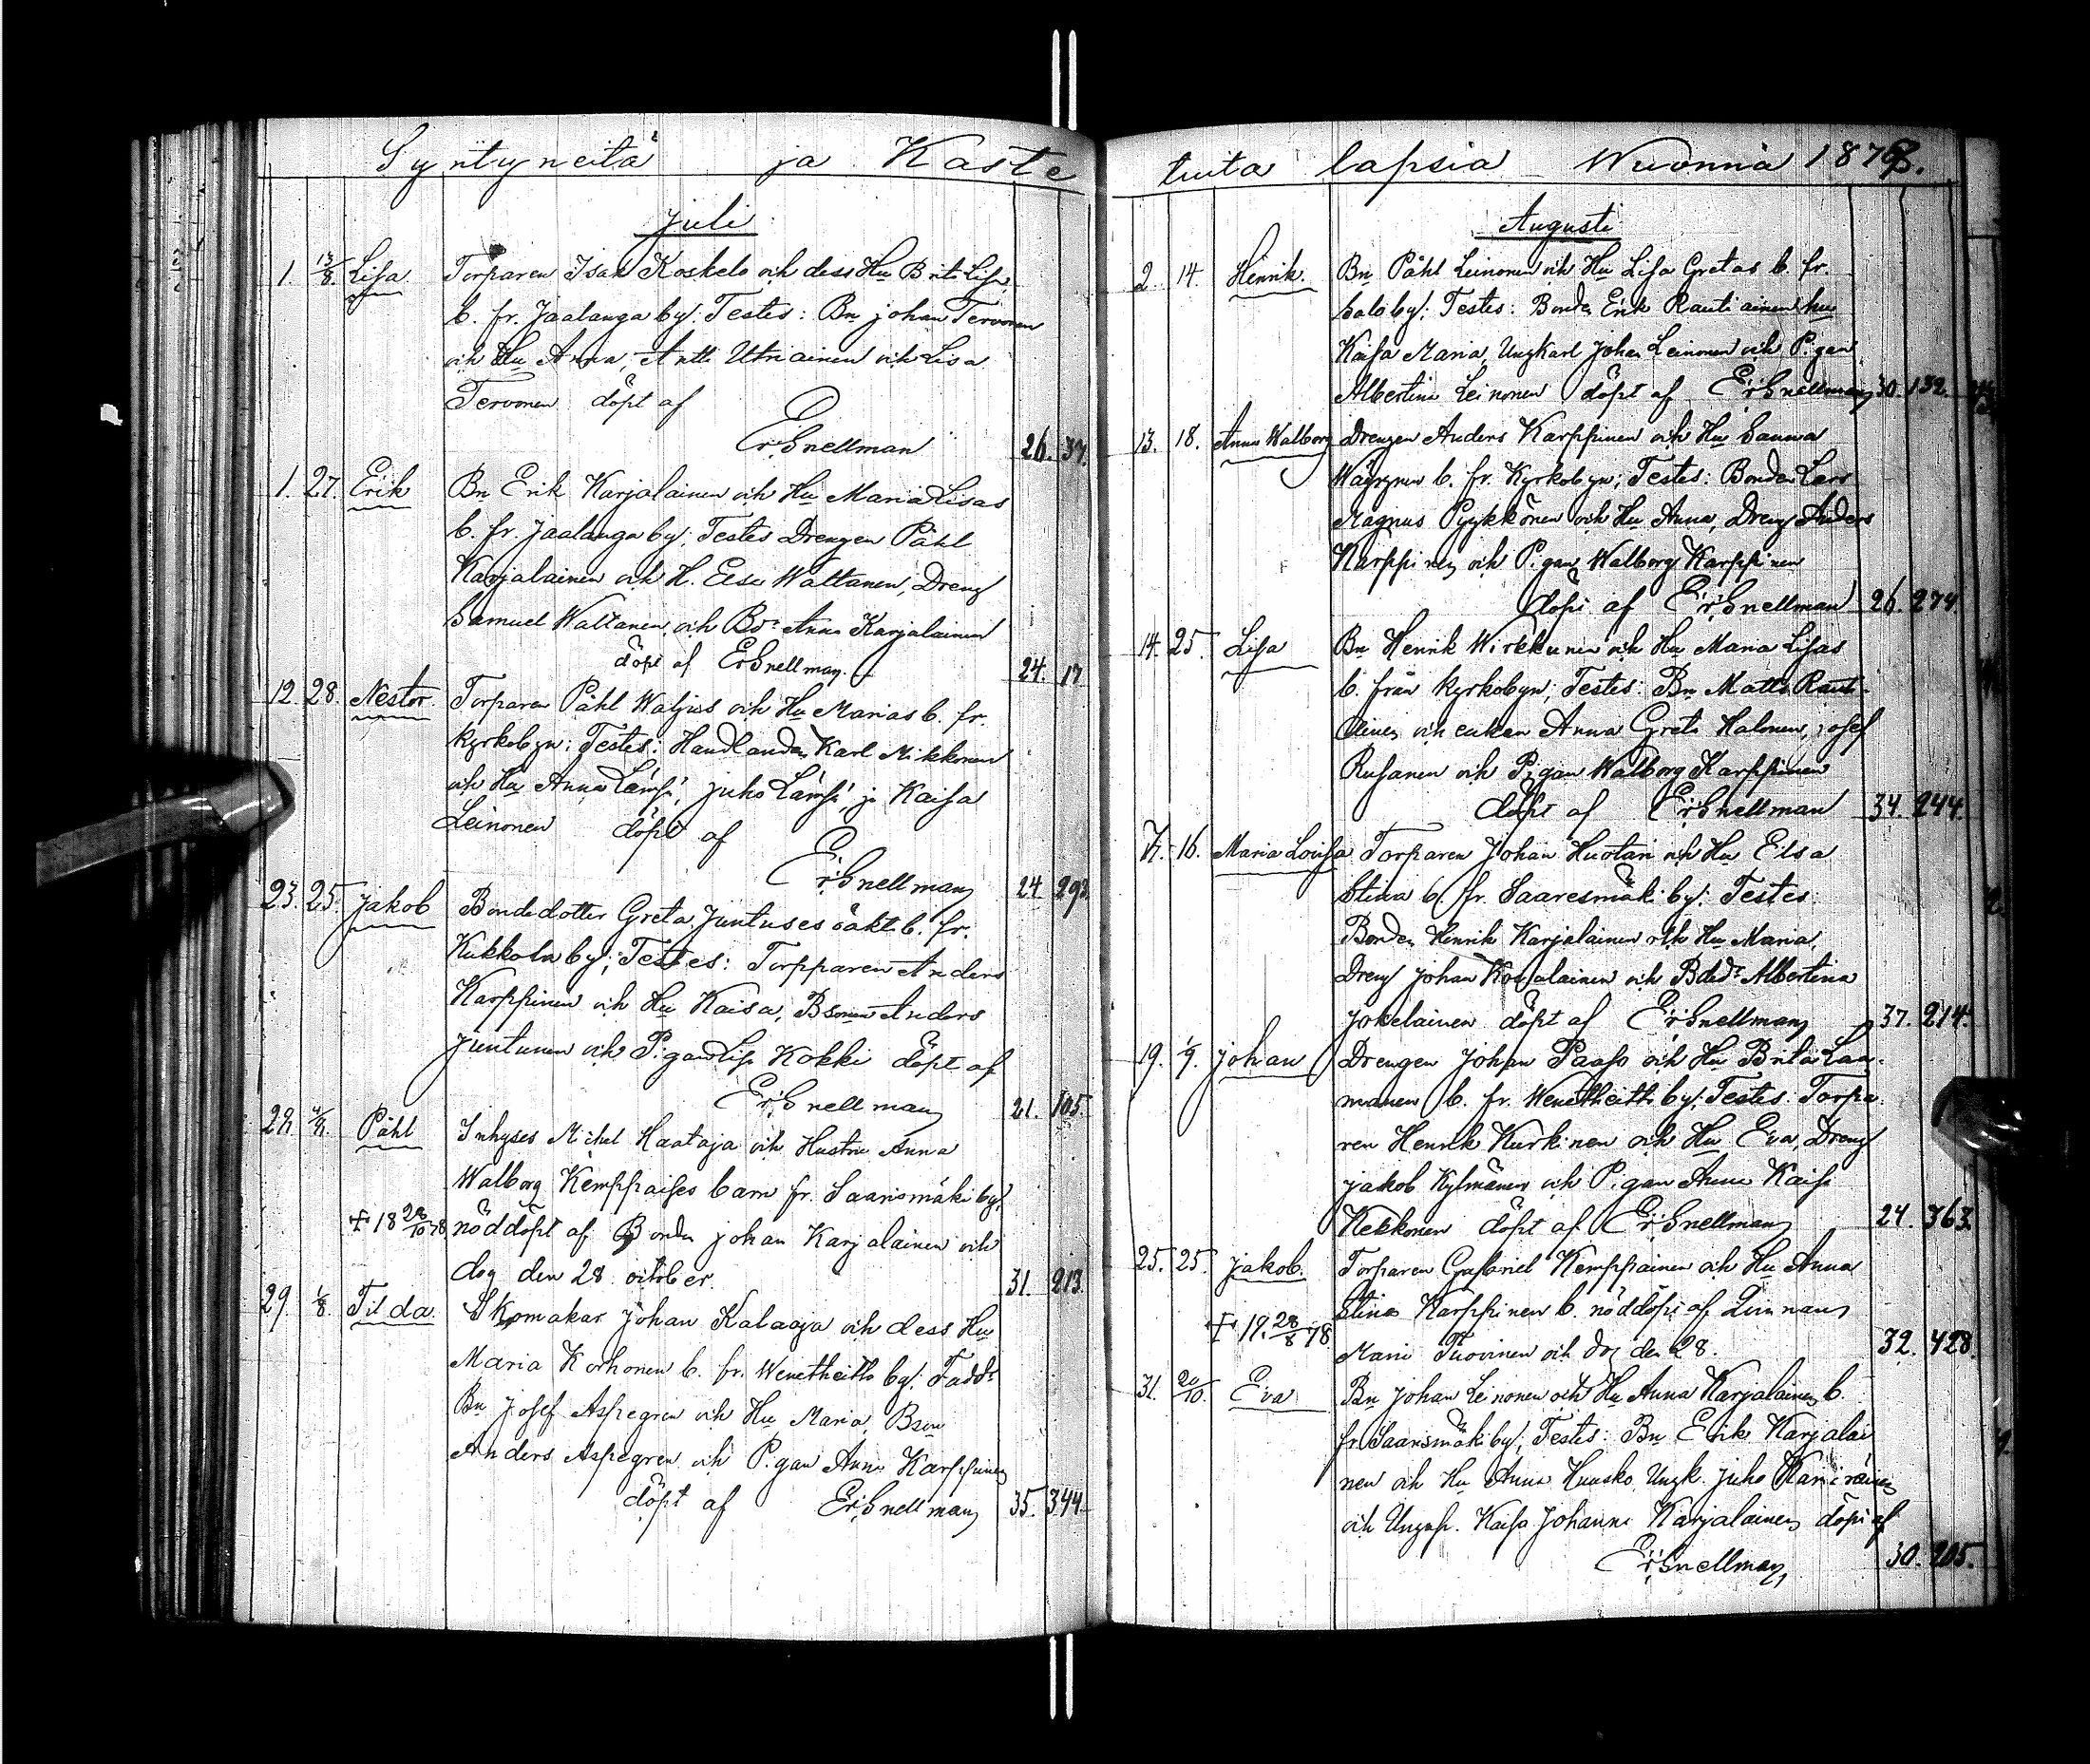 Syntyneitä ja Kaste
Juli
1. 13/8. Lisa Torparen Isak Koskelo och dess Hu Brita Lisa
b. fr. Jaalanga by: Testes: Bn Johan Tervonen
och Hu Anna, Antti Utriainen och Lisa
Tervonen döpt af
Er. Snellman 26. 37.
1. 27. Erik Bn Erik Karjalainen och Hu Maria Lisas
b. fr. Jaalanga by; Testes Drengen Påhl
Karjalainen och H. Elsa Waltanen, Dreng
Samuel Waltanen och Bdr Anna Karjalainen
döpt af Er Snellman 24. 17.
12. 28. Nestor Torparen Påhl Waljus och Hu Marias b. fr.
kyrkobyn: Testes: Handlanden Karl Mikkonen
och Hu Anna Lämsä, Juho Lämsä, ja Kaisa
Leinonen döpt af
Er. Snellman 24. 293.
23. 25. Jakob Bondedotter Greta Juntuses oäkt. b. fr.
Kukkola by; Testes: Torpparen Anders
Karppinen och Hu Kaisa, Bsonen Anders
Juntunen och Pigan Lisa Kokki döpt af
Er. Snellman 21. 105.
Påhl Inhyses Michel Haataja och Hustru Anna
Walborg Kemppaises barn fr. Saarismäki by,
† 18 28/10 78 nöddöpt af Bonden Johan Karjalainen och
dog den 28 october. 31. 213.
29. 1/8. Tilda Skomakar Johan Kalaaja och dess Hu
Maria Korhonen b. fr. Wenetheitto by; Faddr
Bn Josef Aspegren och Hu Maria, Bson
Anders Aspegren och Pigan Anna Karppinen
döpt af Er. Snellman 35. 344.
tuita lapsia Wuonna 1878.
Augusti
2. 14. Henrik. Bn Påhl Leinonen och Hu Lisa Gretas b. fr.
Salo by; Testes: Bonden Erik Rautiainen hu
Kaisa Maria, Ungkarl Johan Leinonen och Pigan
Albertina Leinonen döpt af Er. Snellman 30. 132.
13. 18. Anna Walborg Drengen Anders Karppinen och Hu Sanna
Wäyrynen b. fr. Kyrkobyn; Testes: Bonden Lars
Magnus Pyykkönen och Hu Anna, Dreng Anders
Karppinen och Pigan Walborg Karppinen
döpt af Er. Snellman 26. 274.
14. 25. Lisa Bn Henrik Wirkkunen och Hu Maria Lisas
b. från kyrkobyn; Testes: Bn Matts Rauti-
ainen och enkan Anna Greta Halonen, Josef
Rusanen och Pigan Walborg Karppinen
döpt af Er. Snellman 34. 244.
16. Maria Lovisa Torparen Johan Huotari och Hu Elsa
Stina b. fr. Saaresmäki by: Testes.
Bonden Henrik Karjalainen och Hu Maria,
Dreng Johan Karjalainen och Bdedr Albertina
Jokelainen döpt af Er. Snellman 37. 214.
19. 1/9. Johan Drengen Johan Paaso och Hu Brita Laa-
manen b. fr. Wenetheitto by; Testes: Torpa-
ren Henrik Kurkinen och Hu Eva, Dreng
Jakob Kylmänen och Pigan Anna Kaisa
Kekkonen döpt af Er. Snellman 24. 363.
25. 25. Jakob. Torparen Gabriel Kemppainen och Hu Anna
Stina Karppinen b. nöddöpt af Qvinnan
† 19. 28/8 78. Maria Tuovinen och dog den 28. 32. 428.
31. 20/10. Eva Bn Johan Leinonen och Hu Anna Karjalainen b.
fr. Saarismäki by; Testes: Bn Erik Karjalai
nen och Hu Anna Huusko, Ungk. Juho
och Ungpl. Kaisa Johanna Karjalainen döpt af
Er. Snellman 30. 205.